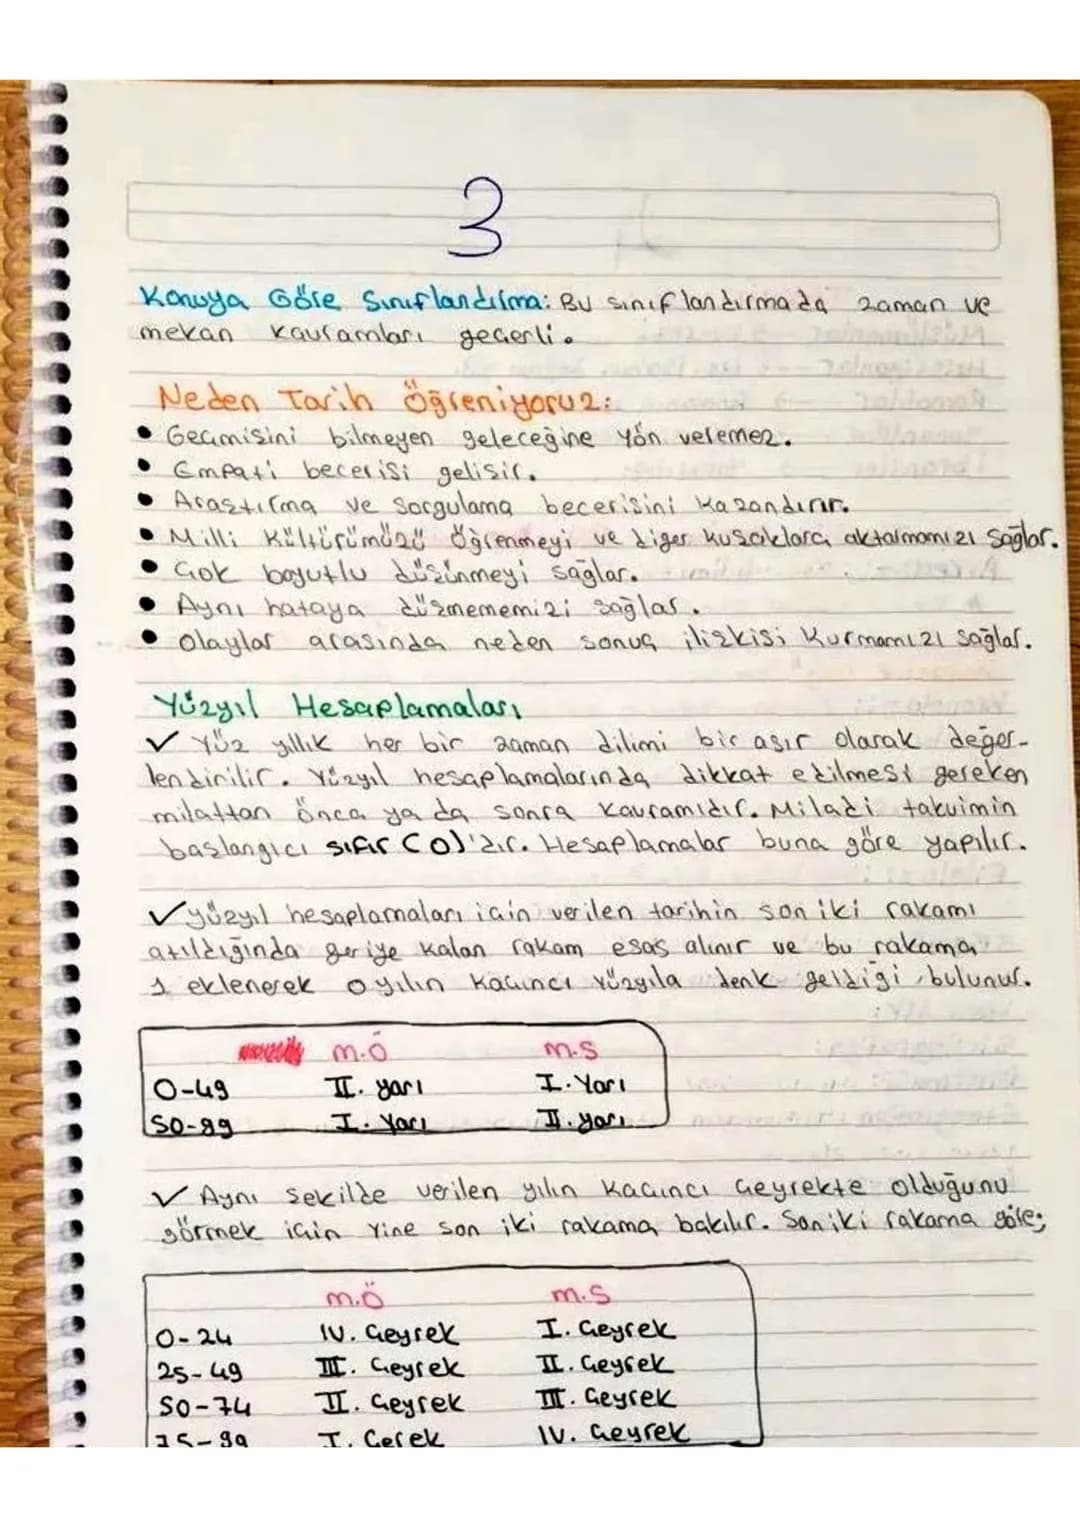 3
Konuya Göre Sınıflandırma: Bu sınıflandırmada zaman ve
mekan kavramları geçerli.
Neden Tarih Öğreniyoruz:
• Geçmişini bilmeyen geleceğine yön veremez.
• Empati becerisi gelişir.
• Araştırma ve Sorgulama becerisini kazandırır.
• Milli Kültürümüzü Öğrenmeyi ve diğer kuşaklara aktarmamızı Sağlar.
• Çok boyutlu düşünmeyi sağlar.
• Aynı hataya düşmememizi sağlar.
• Olaylar arasında neden sonuç ilişkisi Kurmamızı sağlar.
Yüzyıl Hesaplamaları
✓ Yüz yıllık her bir zaman dilimi bir asır olarak değer-
lendirilir. Yüzyıl hesaplamalarında dikkat edilmesi gereken
milattan önca ya da sonra kavramıdır. Miladi takvimin
başlangıcı sıfır (0)'dır. Hesaplamalar buna göre yapılır.
✓ yüzyıl hesaplamaları için verilen tarihin son iki rakamı
atıldığında geriye kalan rakam esas alınır ve bu rakama
1 eklenerek o yılın kaçıncı yüzyıla denk geldiği bulunur.
m.ö m.s
0-49 II. yarı I. Yarı
50-99 I. Yarı II. yarı
✓ Aynı Şekilde verilen yılın kaçıncı Çeyrekte olduğunu
görmek için Yine son iki rakama bakılır. Son iki rakama göre;
m.ö m.s
0-24 IV. Çeyrek I. Çeyrek
25-49 III. Çeyrek II. Çeyrek
50-74 II. Çeyrek III. Çeyrek
75-99 I. Çerek IV. Çeyrek